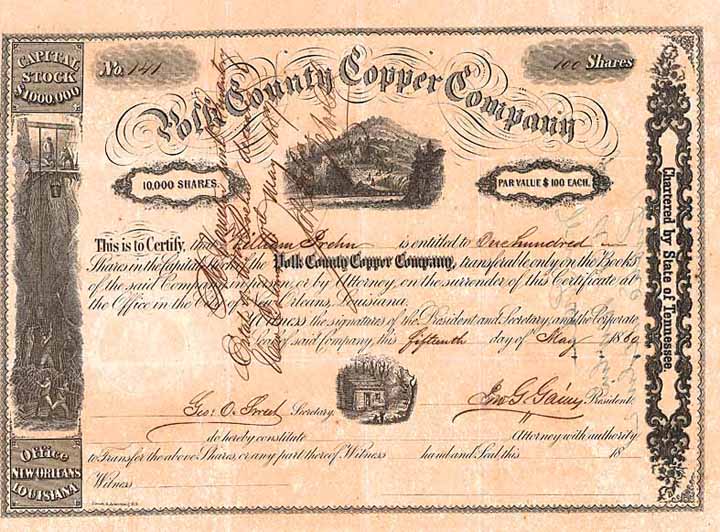 CAPITAL
STOCK
$1000,000
No. 141
100 Shares
Polk County Copper Company
10,000 SHARES.
PAR VALUE $100 EACH.
Chartered by State of Tennessee.
This is to Certify, that William is entitled to One hundred
Shares in the Capital Stock of the Polk County Copper Company, transferable only on the Books
of the said Company in person, or by Attorney, on the surrender of this Certificate at
the Office in the City of New Orleans, Louisiana.
Witness the signatures of the President and Secretary, and the Corporate
Seal of said Company, this fifteenth day of May 1860
Geo: O. Sweet Secretary.
Jno. G. Gaines President
do hereby constitute Attorney with authority
to Transfer the above Shares, or any part thereof Witness hand and Seal this 18
Witness
Office
NEW ORLEANS
LOUISIANA